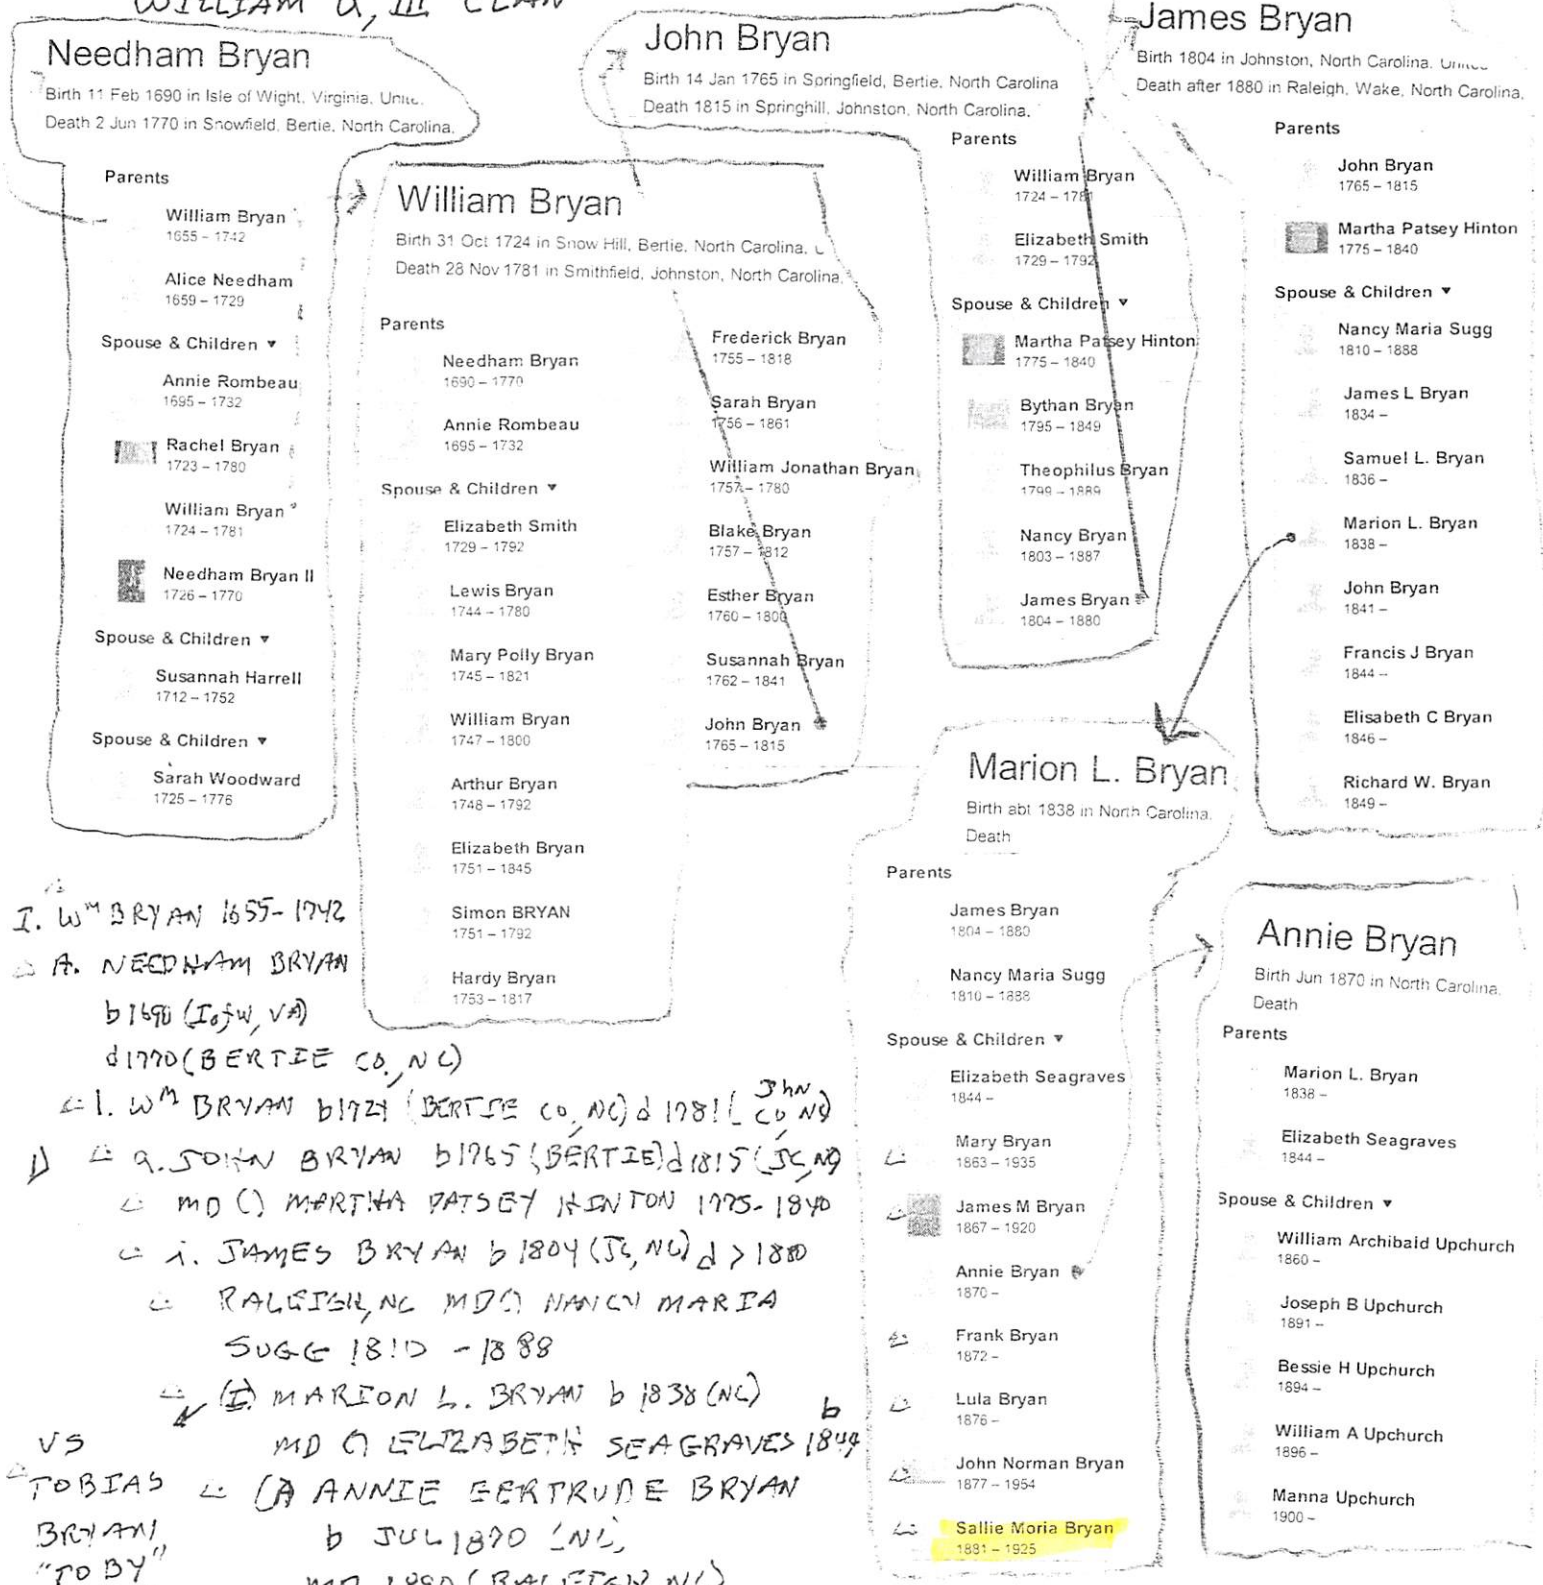 WILLIAM
CLAN
Needham Bryan
Birth 11 Feb 1690 in Isle of Wight, Virginia, Unite
Death 2 Jun 1770 in Snowfield, Bertie, North Carolina,
Parents
William Bryan
1655 – 1742
Alice Needham
1659 – 1729
Spouse & Children ▼
Annie Rombeau
1695 – 1732
Rachel Bryan
1723 – 1780
William Bryan
1724 – 1781
Needham Bryan II
1726 – 1770
Spouse & Children ▼
Susannah Harrell
1712 – 1752
Spouse & Children ▼
Sarah Woodward
1725 – 1776
William Bryan
Birth 31 Oct 1724 in Snow Hill, Bertie, North Carolina,
Death 28 Nov 1781 in Smithfield, Johnston, North Carolina,
Parents
Needham Bryan
1690 – 1770
Annie Rombeau
1695 – 1732
Spouse & Children ▼
Elizabeth Smith
1729 – 1792
Lewis Bryan
1744 – 1780
Mary Polly Bryan
1745 – 1821
William Bryan
1747 – 1800
Arthur Bryan
1748 – 1792
Elizabeth Bryan
1751 – 1845
Simon BRYAN
1751 – 1792
Hardy Bryan
1753 – 1817
Frederick Bryan
1755 – 1818
Sarah Bryan
1756 – 1861
William Jonathan Bryan
1757 – 1780
Blake Bryan
1757 – 1812
Esther Bryan
1760 – 1800
Susannah Bryan
1762 – 1841
John Bryan
1765 – 1815
John Bryan
Birth 14 Jan 1765 in Springfield, Bertie, North Carolina
Death 1815 in Springhill, Johnston, North Carolina,
Parents
William Bryan
1724 – 1781
Elizabeth Smith
1729 – 1792
Spouse & Children ▼
Martha Patsey Hinton
1775 – 1840
Bythan Bryan
1795 – 1849
Theophilus Bryan
1799 – 1889
Nancy Bryan
1803 – 1887
James Bryan
1804 – 1880
James Bryan
Birth 1804 in Johnston, North Carolina, United
Death after 1880 in Raleigh, Wake, North Carolina,
Parents
John Bryan
1765 – 1815
Martha Patsey Hinton
1775 – 1840
Spouse & Children ▼
Nancy Maria Sugg
1810 – 1888
James L Bryan
1834 –
Samuel L. Bryan
1836 –
Marion L. Bryan
1838 –
John Bryan
1841 –
Francis J Bryan
1844 –
Elisabeth C Bryan
1846 –
Richard W. Bryan
1849 –
Marion L. Bryan
Birth abt 1838 in North Carolina,
Death
Parents
James Bryan
1804 – 1880
Nancy Maria Sugg
1810 – 1888
Spouse & Children ▼
Elizabeth Seagraves
1844 –
Mary Bryan
1863 – 1935
James M Bryan
1867 – 1920
Annie Bryan
1870 –
Frank Bryan
1872 –
Lula Bryan
1876 –
John Norman Bryan
1877 – 1954
Sallie Moria Bryan
1881 – 1925
Annie Bryan
Birth Jun 1870 in North Carolina,
Death
Parents
Marion L. Bryan
1838 –
Elizabeth Seagraves
1844 –
Spouse & Children ▼
William Archibald Upchurch
1860 –
Joseph B Upchurch
1891 –
Bessie H Upchurch
1894 –
William A Upchurch
1896 –
Manna Upchurch
1900 –
I. Wᴹ BRYAN 1655-1742
A. NEEDHAM BRYAN
b1690 (I of W, VA)
d1770 (BERTIE CO., NC)
1. Wᴹ BRYAN b1724 (BERTIE CO, NC) d 1781 (JhN CO, NC)
a. JOHN BRYAN b1765 (BERTIE) d 1815 (JC, NC)
MD () MARTHA PATSEY HINTON 1775-1840
i. JAMES BRYAN b 1804 (JC, NC) d > 1880
RALEIGH, NC MD () NANCY MARIA
SUGG 1810 - 1888
(I) MARION L. BRYAN b 1838 (NC)
MD () ELIZABETH SEAGRAVES b 1844
(A) ANNIE GERTRUDE BRYAN
b JUL 1870 (NC)
MD 1890 (RALEIGH, NC)
VS
TOBIAS
BRYAN
"TOBY"